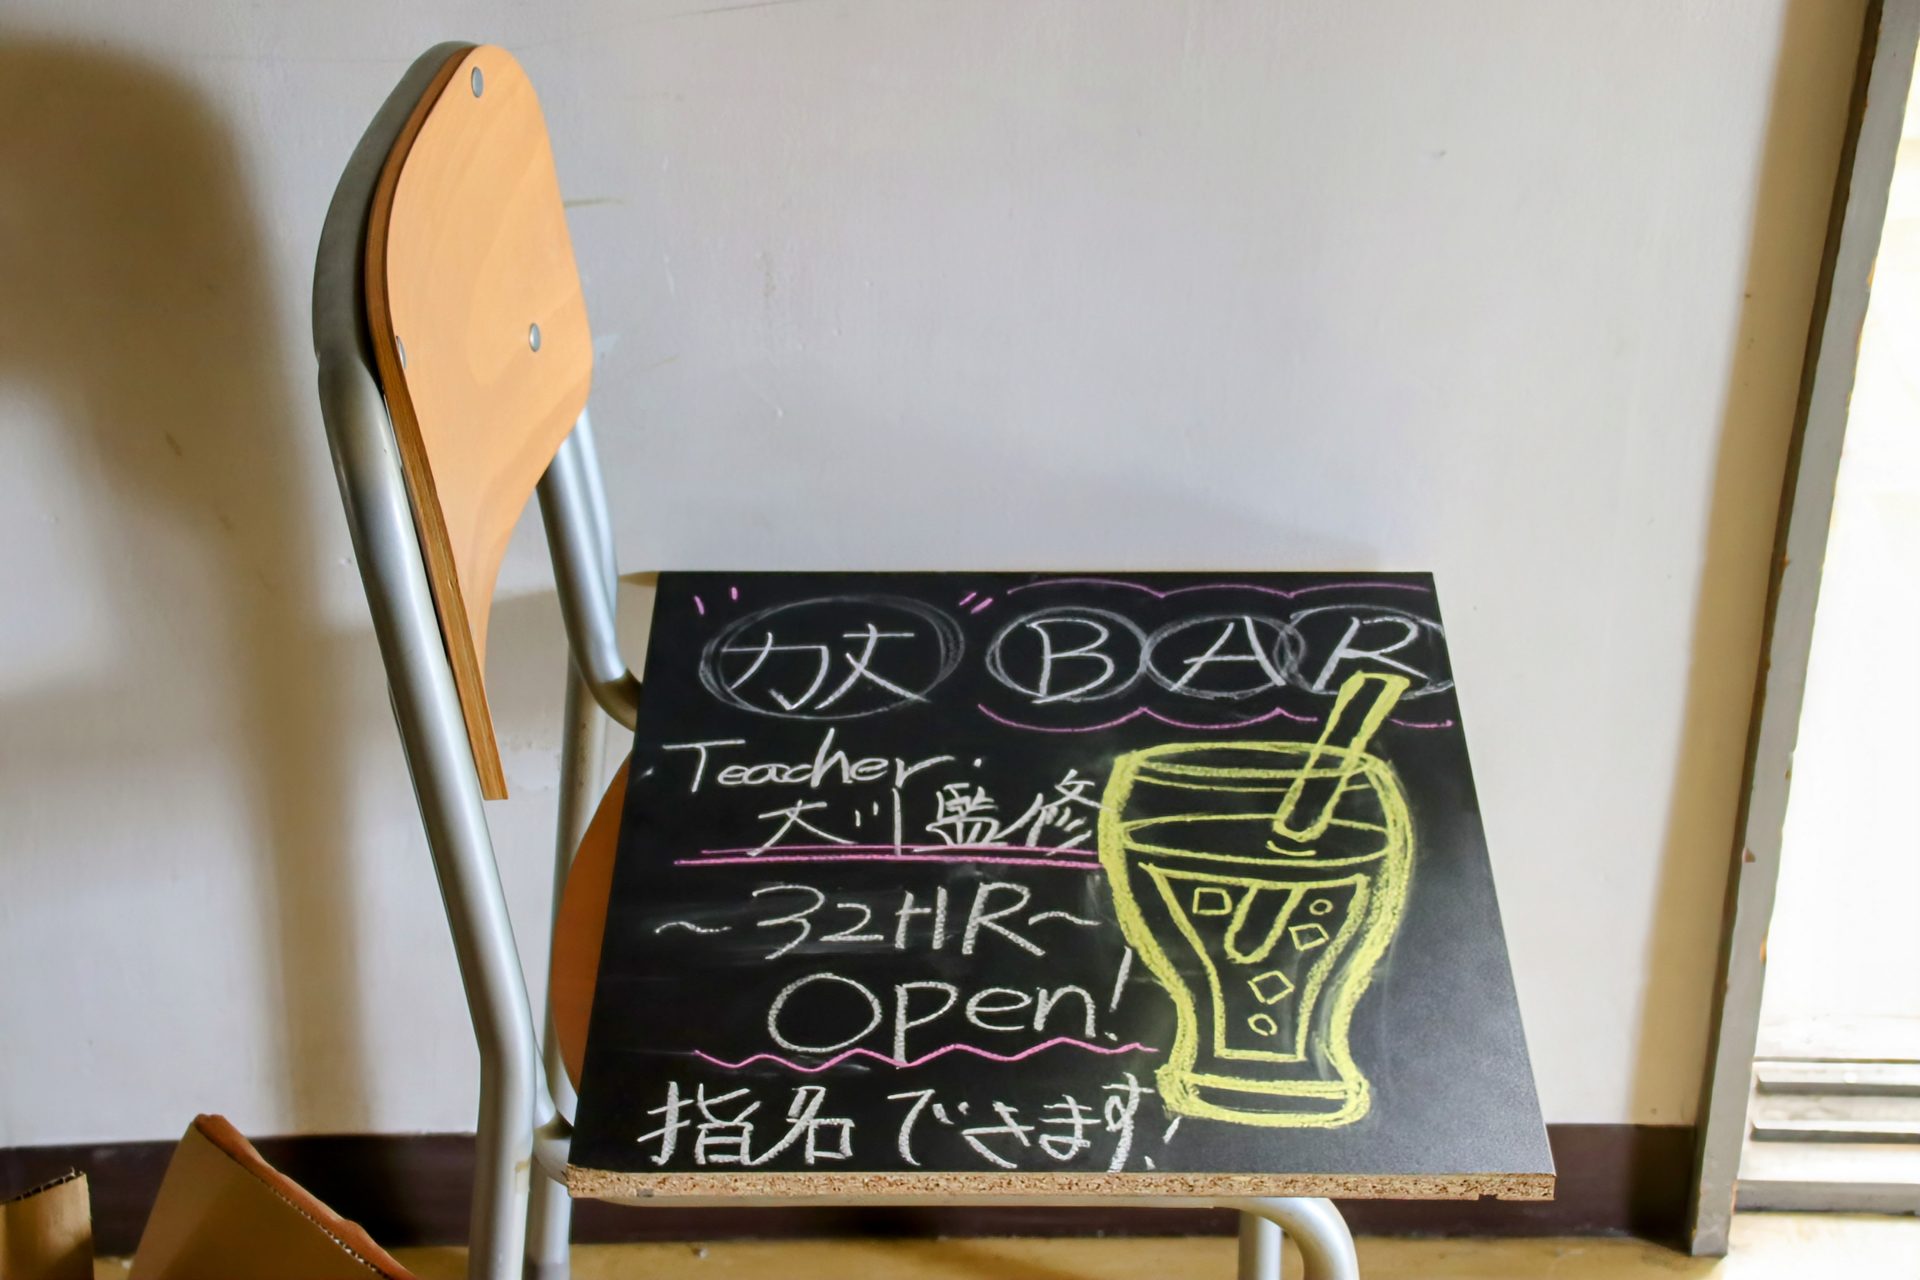 "カ丈" BAR
Teacher.
大川監修
～32HR～
Open!
指名できます!